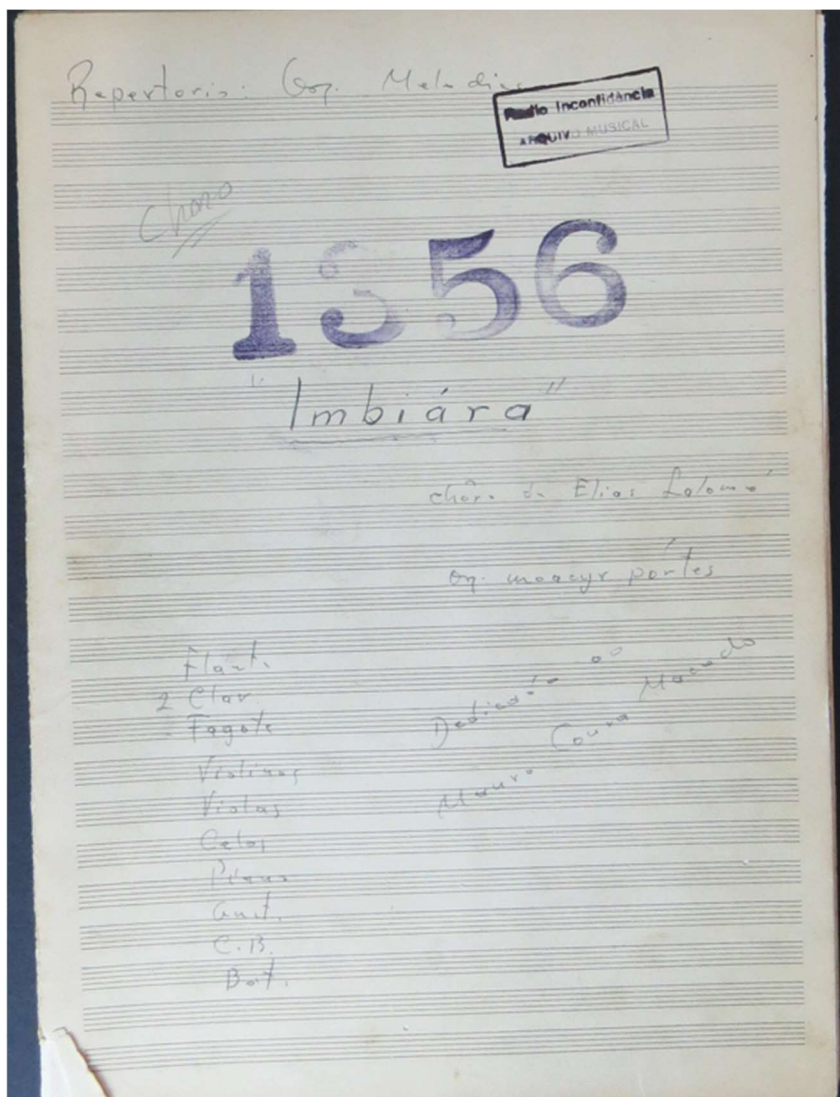 Repertorio: Orq. Melodias
Radio Inconfidência
ARQUIVO MUSICAL
Choro
1356
"Imbiára"
chôro de Elias Salomé
orq. moacyr pórtes
Flaut.
2 Clar
Fagote
Violinos
Violas
Celos
Piano
Guit.
C.B.
Bat.
Dedicado ao
Mauro Coura Macedo